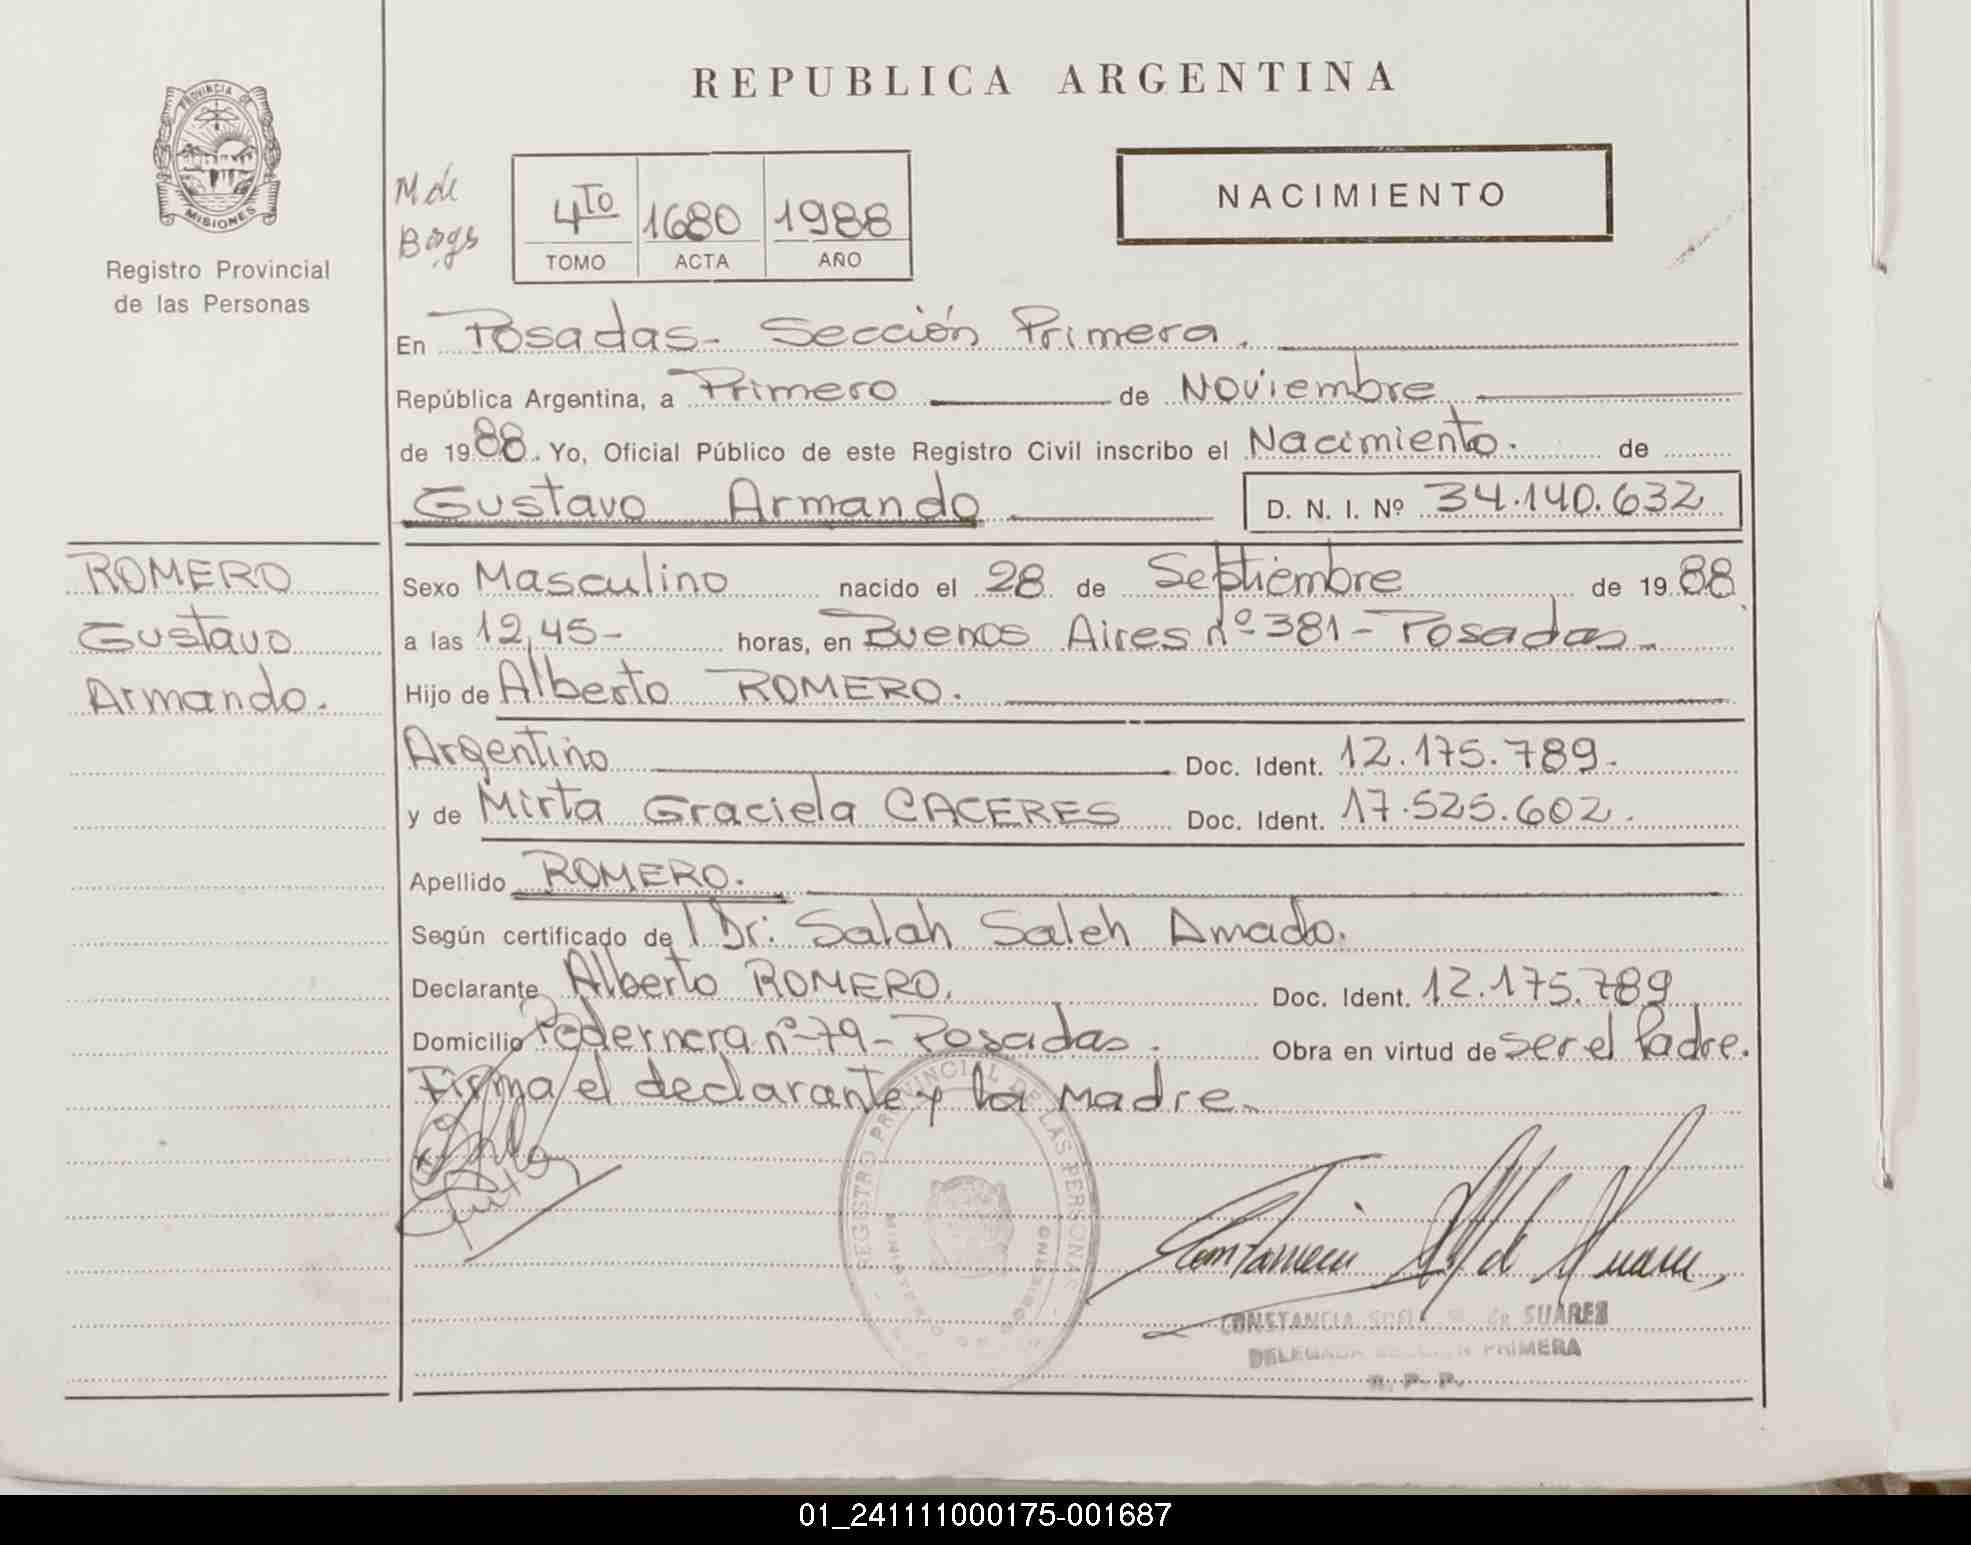 REPUBLICA ARGENTINA
PROVINCIA DE
MISIONES
Registro Provincial
de las Personas
M de
4TO 1680 1988
TOMO ACTA AÑO
NACIMIENTO
En Posadas- Sección Primera.
República Argentina, a Primero de Noviembre
de 1988. Yo, Oficial Público de este Registro Civil inscribo el Nacimiento. de
Gustavo Armando D. N. I. Nº 34.140.632
ROMERO
Gustavo
Armando.
Sexo Masculino nacido el 28 de Septiembre de 1988
a las 12,45- horas, en Buenos Aires nº 381- Posadas-
Hijo de Alberto ROMERO.
Argentino Doc. Ident. 12.175.789.
y de Mirta Graciela CACERES Doc. Ident. 17.525.602.
Apellido ROMERO.
Según certificado del Dr: Salah Saleh Amado.
Declarante Alberto ROMERO. Doc. Ident. 12.175.789
Domicilio Pedernera nº 79- Posadas. Obra en virtud de ser el Padre.
Firma el declarante y la Madre.
REGISTRO PROVINCIAL DE LAS PERSONAS
MINISTERIO DE GOBIERNO
CONSTANCIA DE SUAREZ
DELEGADA SECCION PRIMERA
R. P. P.
01_241111000175-001687